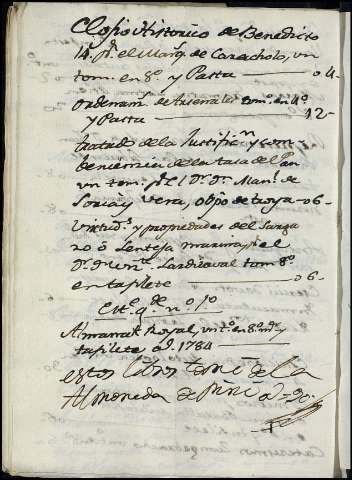 Elogio Historico de Benedicto
14. pr. el Marq.s de Caracholo, un
tom. en 8.º y Pasta — 04-
ordenam. de Arsenales tom.º en 4.º
y Pasta — 12-
tratado de la Justific.n y con-
beniencia de la tasa del Pan
un tom. pr. el Dr. Dn. Man.l de
y vera, obpo de troya - 06-
Virtud.s y propiedades del
ro ó Lenteja marina, el
Dr. Dn. Lardizaval tom. 8.º
en tafilete — 06-
Est.e q.e n.º 1.º
Almanak Royal, un t.º en 8.º m.r y
tafilete a.d. 1784
estos libros tomé de la
Almoneda de - 20-